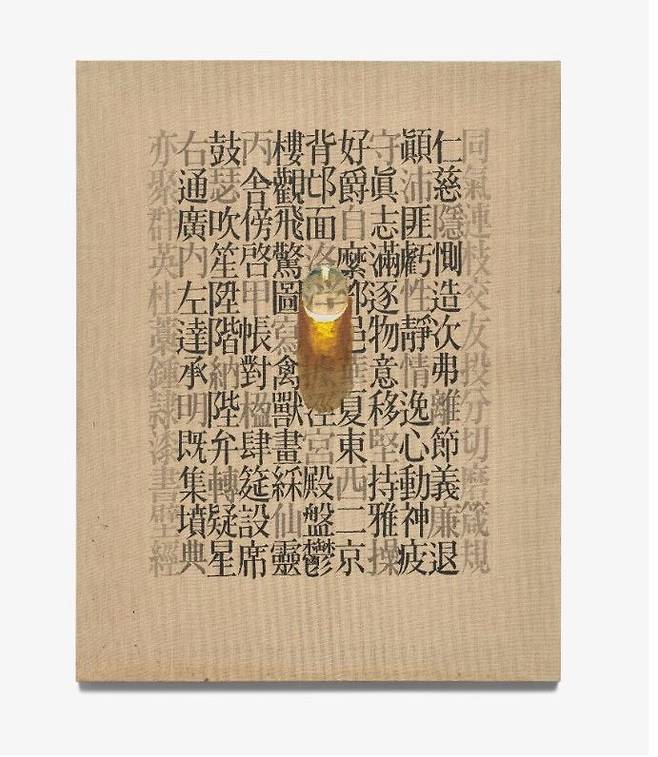 同氣連枝交友投分切磨箴規
仁慈隱惻造次弗離節義廉退
顚沛匪虧性靜情逸心動神疲
守眞志滿逐物意移堅持雅操
好爵自縻都邑華夏東西二京
背邙面洛浮涇宮殿盤鬱
樓觀飛驚圖寫禽獸畫綵仙靈
丙舍傍啓甲帳對楹肆筵設席
鼓瑟吹笙陞階納陛弁轉疑星
右通廣内左達承明既集墳典
亦聚群英杜藁鍾隷漆書壁經